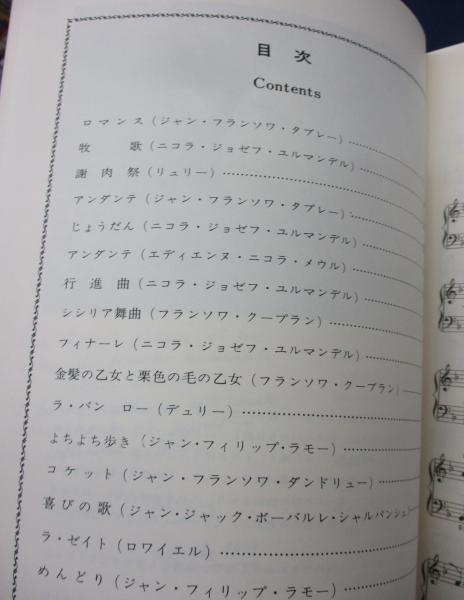 目次
Contents
ロマンス(ジャン・フランソワ・タプレー)
牧歌(ニコラ・ジョゼフ・ユルマンデル)
謝肉祭(リュリー)
アンダンテ(ジャン・フランソワ・タプレー)
じょうだん(ニコラ・ジョゼフ・ユルマンデル)
アンダンテ(エディエンヌ・ニコラ・メウル)
行進曲(ニコラ・ジョゼフ・ユルマンデル)
シシリア舞曲(フランソワ・クープラン)
フィナーレ(ニコラ・ジョゼフ・ユルマンデル)
金髪の乙女と栗色の毛の乙女(フランソワ・クープラン)
ラ・バン ロー(デュリー)
よちよち歩き(ジャン・フィリップ・ラモー)
コケット(ジャン・フランソワ・ダンドリュー)
喜びの歌(ジャン・ジャック・ボーバルレ・シャルパンシュ)
ラ・ゼイト(ロワイエル)
めんどり(ジャン・フィリップ・ラモー)